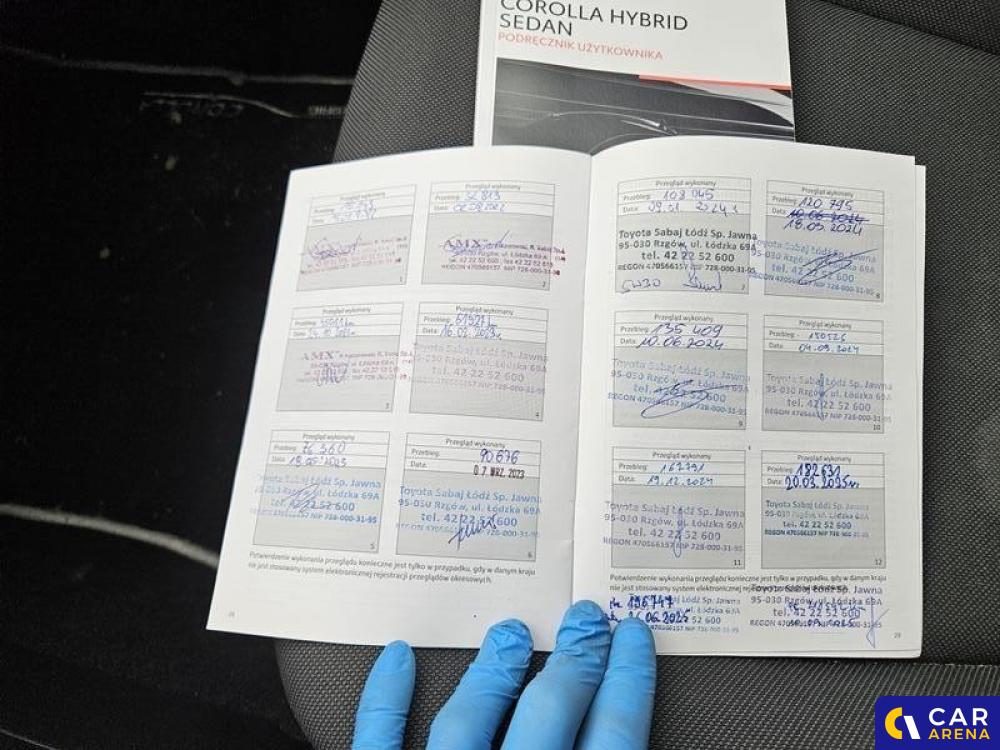 COROLLA HYBRID
SEDAN
PODRĘCZNIK UŻYTKOWNIKA
Przegląd wykonany
Przebieg:
Data:
1
Przegląd wykonany
Przebieg: 32 813
Data:
AMX
2
Przegląd wykonany
Przebieg:
Data:
AMX
3
Przegląd wykonany
Przebieg: 61921 km
Data: 16.02.2023r.
Toyota Sabaj Łódź Sp. Jawna
95-030 Rzgów, ul. Łódzka 69A
tel. 42 22 52 600
4
Przegląd wykonany
Przebieg: 76 360
Data: 18.05.2023
Toyota Sabaj Łódź Sp. Jawna
95-030 Rzgów, ul. Łódzka 69A
tel. 42 22 52 600
REGON 470566157 NIP 728-000-31-95
5
Przegląd wykonany
Przebieg: 90676
Data: 0 7. WRZ. 2023
Toyota Sabaj Łódź Sp. Jawna
95-030 Rzgów, ul. Łódzka 69A
tel. 42 22 52 600
REGON 470566157 NIP 728-000-31-95
6
Potwierdzenie wykonania przeglądu konieczne jest tylko w przypadku, gdy w danym kraju
nie jest stosowany system elektronicznej rejestracji przeglądów okresowych.
28
Przegląd wykonany
Przebieg: 108 045
Data: 09.01 2024 r
Toyota Sabaj Łódź Sp. Jawna
95-030 Rzgów, ul. Łódzka 69A
tel. 42 22 52 600
REGON 470566157 NIP 728-000-31-95
5W30
7
Przegląd wykonany
Przebieg: 120 795
Data: 10.06.2024
18.03.2024
Toyota Sabaj Łódź Sp. Jawna
95-030 Rzgów, ul. Łódzka 69A
tel. 42 22 52 600
REGON 470566157 NIP 728-000-31-95
8
Przegląd wykonany
Przebieg: 135 409
Data: 10.06.2024
Toyota Sabaj Łódź Sp. Jawna
95-030 Rzgów, ul. Łódzka 69A
tel. 42 22 52 600
REGON 470566157 NIP 728-000-31-95
9
Przegląd wykonany
Przebieg: 150526
Data: 04.09.2024
Toyota Sabaj Łódź Sp. Jawna
95-030 Rzgów, ul. Łódzka 69A
tel. 42 22 52 600
REGON 470566157 NIP 728-000-31-95
10
Przegląd wykonany
Przebieg: 167791
Data: 19.12.2024
Toyota Sabaj Łódź Sp. Jawna
95-030 Rzgów, ul. Łódzka 69A
tel. 42 22 52 600
REGON 470566157 NIP 728-000-31-95
11
Przegląd wykonany
Przebieg: 182631
Data: 20.03.2025r.
Toyota Sabaj Łódź Sp. Jawna
95-030 Rzgów, ul. Łódzka 69A
tel. 42 22 52 600
REGON 470566157 NIP 728-000-31-95
12
Potwierdzenie wykonania przeglądu konieczne jest tylko w przypadku, gdy w danym kraju
nie jest stosowany system elektronicznej rejestracji przeglądów okresowych.
196747
26.06.2025
Toyota Sabaj Łódź Sp. Jawna
95-030 Rzgów, ul. Łódzka 69A
tel. 42 22 52 600
29
CAR
ARENA